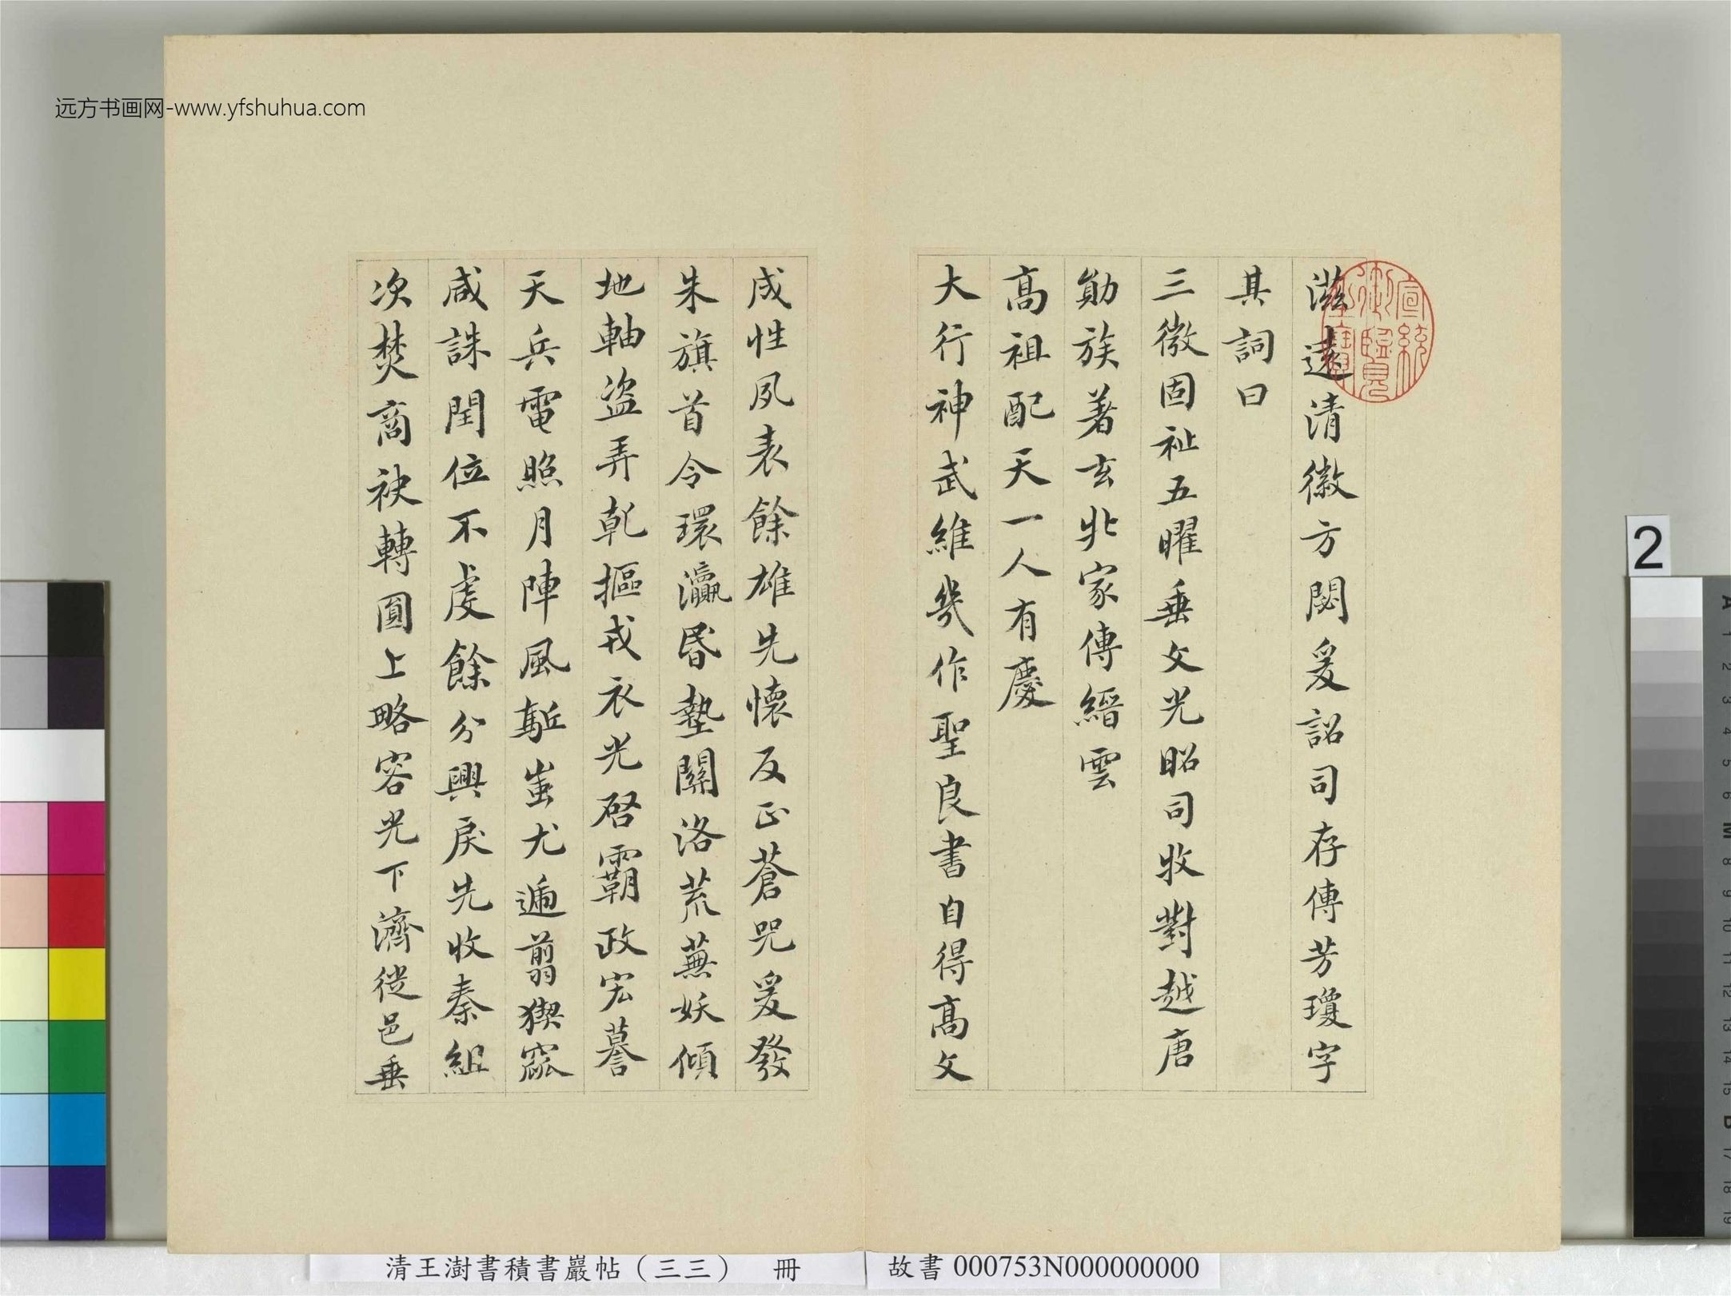 远方书画网-www.yfshuhua.com
滋遠清徽方閟爰詔司存傳芳瓊字
其詞曰
三徵固祉五曜垂文光昭司牧對越唐
勛族著玄丠家傳縉雲
高祖配天一人有慶
大行神武維幾作聖良書自得高文
成性夙表餘雄先懷反正蒼兕爰發
朱旗首令環瀛昏墊關洛荒蕪妖傾
地軸盜弄乾摳戎衣光啓霸政宏謩
天兵電照月陣風駈蚩尤遄翦猰窳
咸誅閏位不虔餘分興戾先收秦組
次焚商袂轉圓上略容光下濟徙邑垂
宣統御覽之寶
2
清王澍書積書巖帖（三三） 冊
故書 000753N000000000